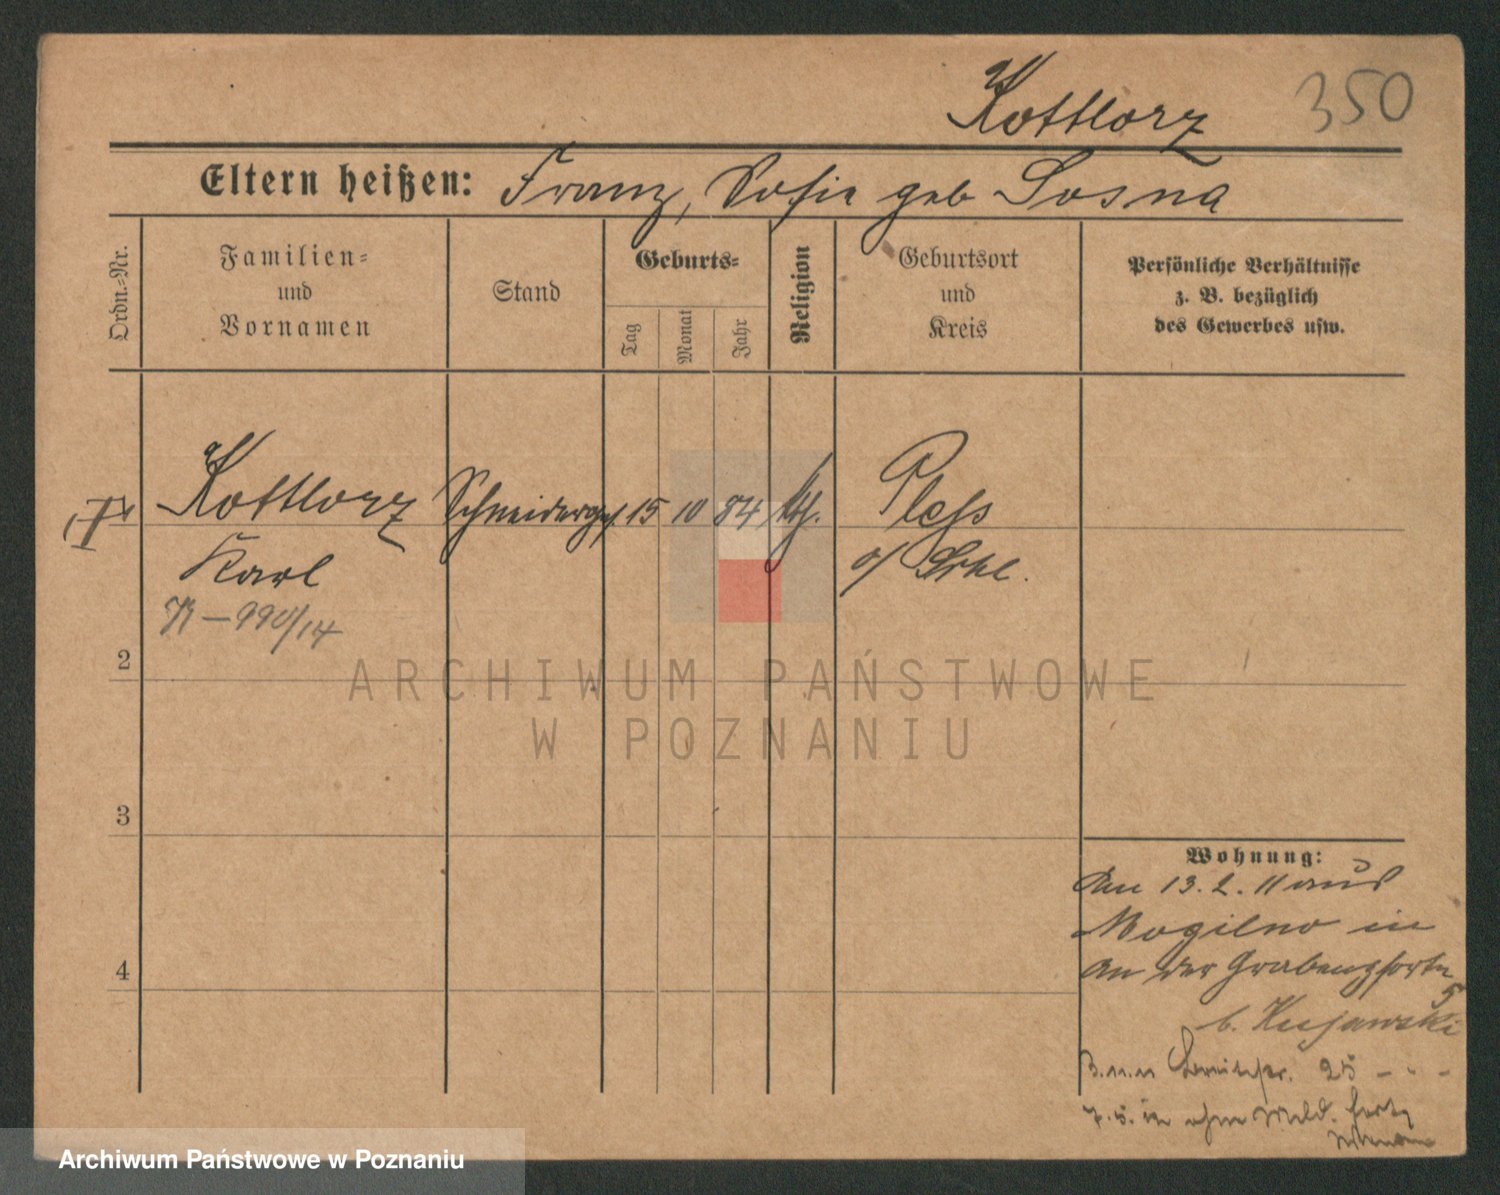 Kottlorz 350
Eltern heißen: Franz, Sofie geb Sosna
Ordn.-Nr.
Familien-
und
Vornamen
Stand
Geburts-
Tag
Monat
Jahr
Religion
Geburtsort
und
Kreis
Persönliche Verhältnisse
z. B. bezüglich
des Gewerbes usw.
Kottlorz Schneiderges. 15 10 84 kth. Pless
Karl o/ Schl.
R – 990/14
2
3
4
Wohnung:
Am 13.2.11 aus
Mogilno in
An der Grabenpforte
5
b. Kujawski
Breitestr. 25
ohne Meld. fort
ARCHIWUM PAŃSTWOWE
W POZNANIU
Archiwum Państwowe w Poznaniu